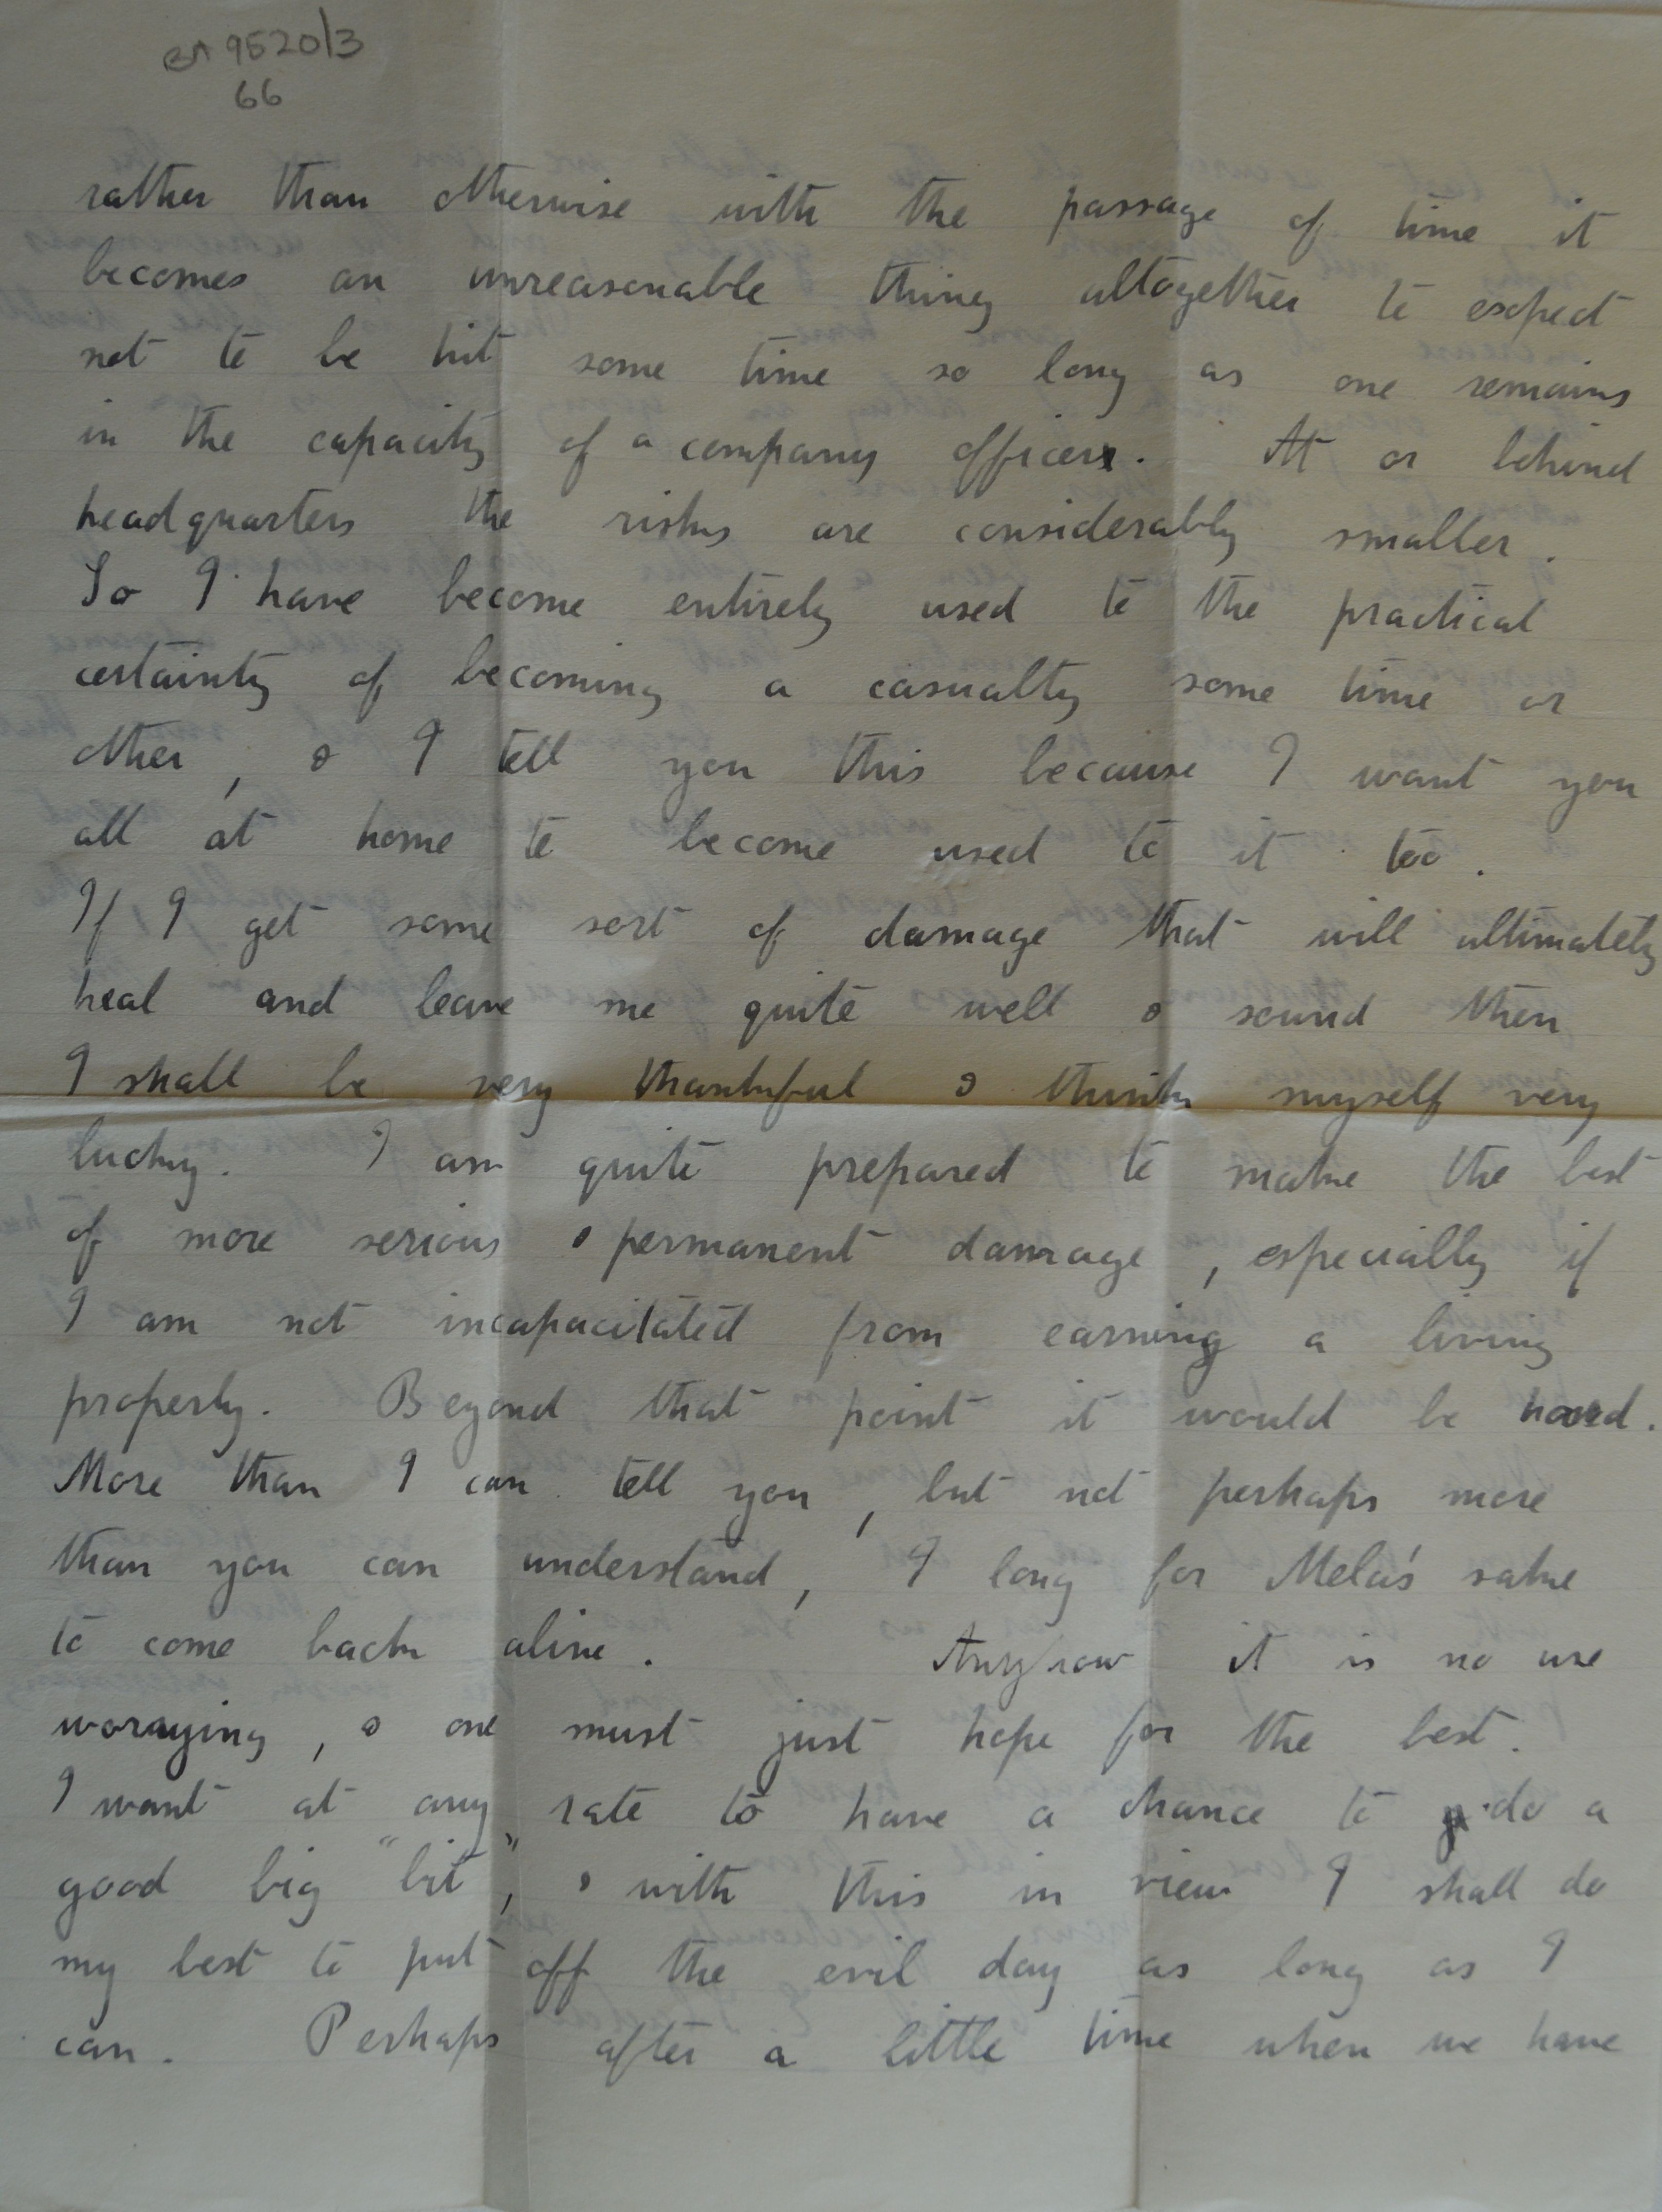 9520/3
66
rather than otherwise with the passage of time it
becomes an unreasonable thing altogether to expect
not to be hit some time so long as one remains
in the capacity of a company officer. At or behind
headquarters the risks are considerably smaller.
So I have become entirely used to the practical
certainty of becoming a casualty some time or
other, & I tell you this because I want you
all at home to become used to it too.
If I get some sort of damage that will ultimately
heal and leave me quite well & sound then
I shall be very thankful & think myself very
lucky. I am quite prepared to make the best
of more serious & permanent damage, especially if
I am not incapacitated from earning a living
properly. Beyond that point it would be hard.
More than I can tell you, but not perhaps more
than you can understand, I long for Mela's sake
to come back alive. Anyhow it is no use
worrying, & one must just hope for the best.
I want at any rate to have a chance to do a
good big "bit", & with this in view I shall do
my best to put off the evil day as long as I
can. Perhaps after a little time when we have